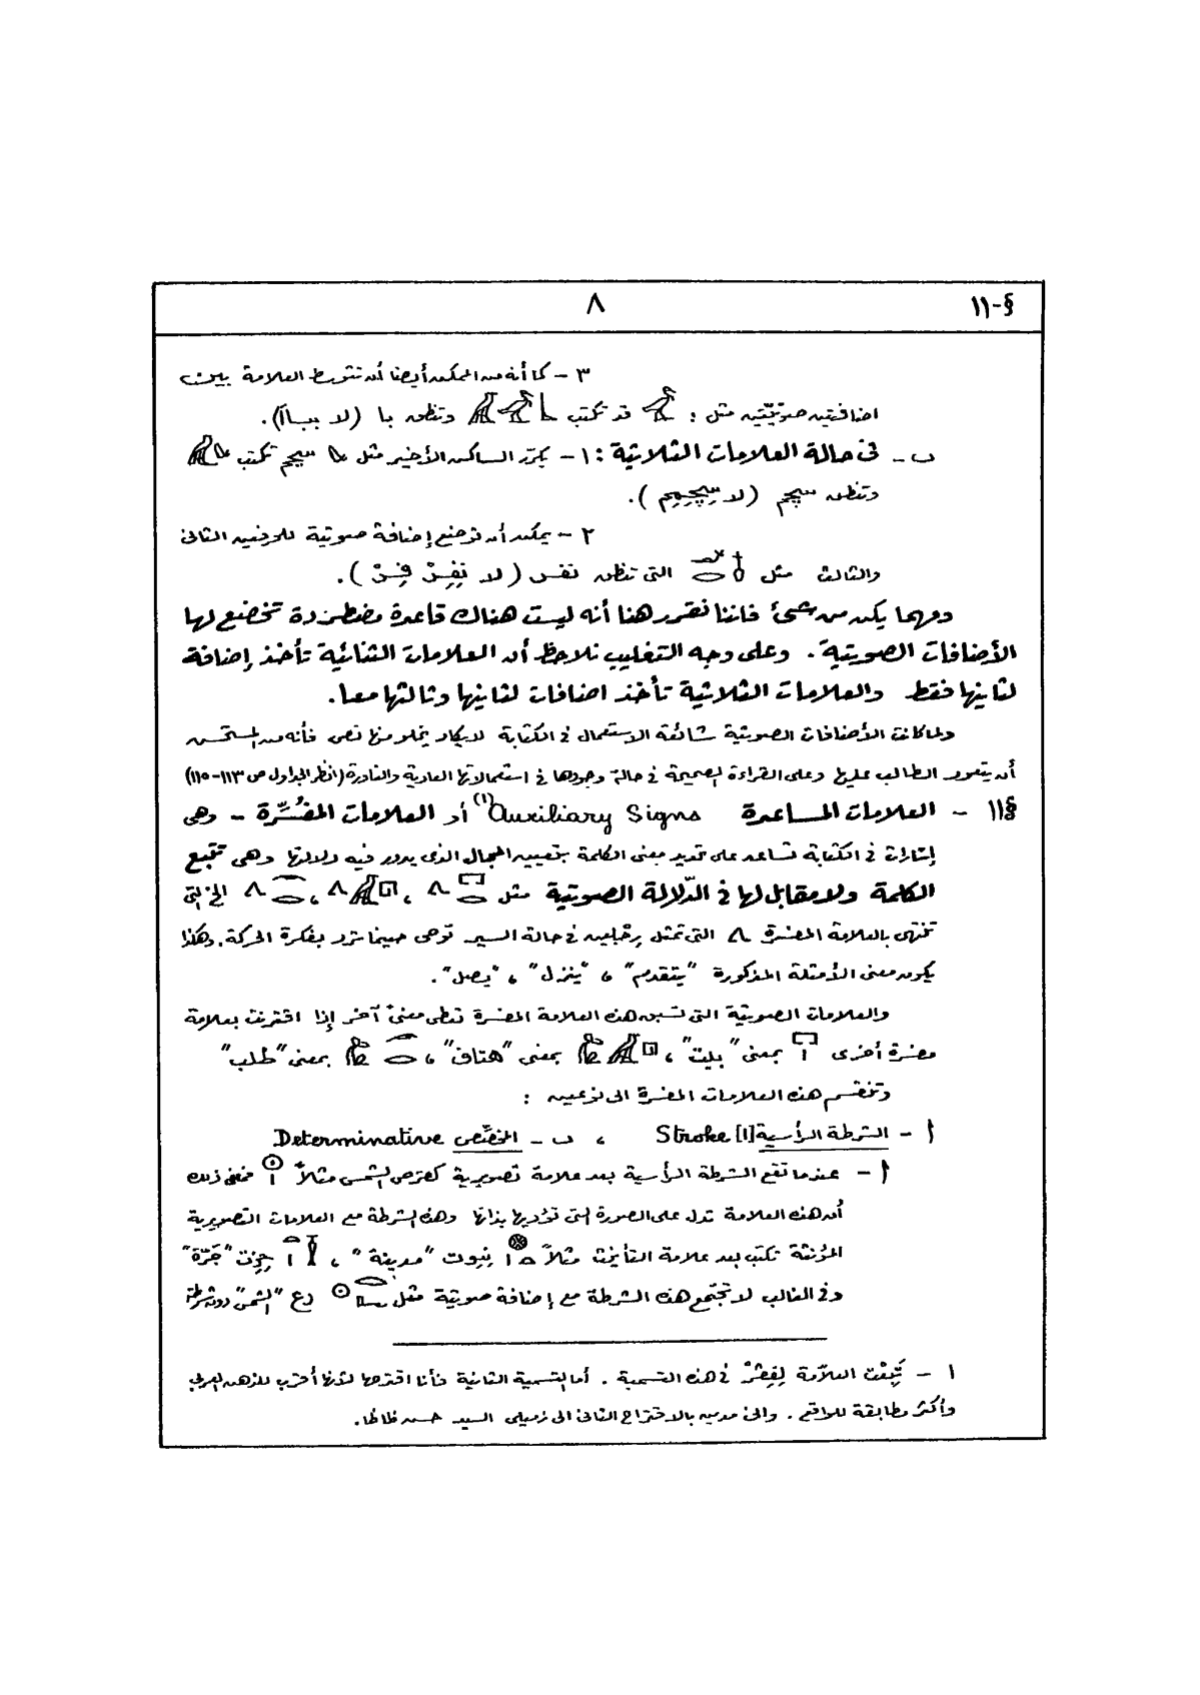 §-١١
٨
٣ - كما أنه من الممكن أيضا أن تتوسط العلامة بين
اضافتين صوتيّتين مثل : قد تكتب وتنطق با (لا ببأأ).
ب - فى حالة العلامات الثلاثية : ١ - يكرّر الساكن الأخير مثل سچم تكتب
وتنطق سچم (لا سِچِمِم).
٢ - يمكن أن توضع إضافة صوتية للحرفين الثانى
والثالث مثل التى تنطق نفر (لا نِفِرْ فِرْ).
ومهما يكن من شئ فاننا نقرر هنا أنه ليست هناك قاعدة مضطردة تخضع لها
الأضافات الصوتية. وعلى وجه التغليب نلاحظ أن العلامات الثنائية تأخذ إضافة
لثانيها فقط والعلامات الثلاثية تأخذ اضافات لثانيها وثالثها معا.
ولما كانت الأضافات الصوتية شائعة الاستعمال فى الكتابة لا يكاد يخلو منها نص فأنه من المستحسن
أن يتعود الطالب عليها وعلى القراءة الصحيحة فى حالة وجودها فى استعمالاتها العادية والنادرة (انظر الجداول ص ١١٣-١١٥)
§١١ - العلامات المساعدة Auxiliary Signs(١) أو العلامات المفسِّرة - وهى
إشارات فى الكتابة تساعد على تحديد معنى الكلمة بتعيين المجال الذى يدور فيه دلالتها وهى تتبع
الكلمة ولا مقابل لها فى الدّلالة الصوتية مثل ، ، الخ التى
تنتهى بالعلامة المفسرة التى تمثل رجلين فى حالة السير توحى حيثما ترد بفكرة الحركة. وهكذا
يكون معنى الأمثلة المذكورة "يتقدم" ، "ينزل" ، "يصل".
والعلامات الصوتية التى تسبق هذه العلامة المفسرة تعطى معنىً آخر إذا اقترنت بعلامة
مفسرة أخرى بمعنى "بيت" ، بمعنى "هتاف" ، بمعنى "طلب"
وتنقسم هذه العلامات المفسرة الى نوعين :
أ - الشرطة الرأسية [|] Stroke ، ب - المخصِّص Determinative
أ - عندما تقع الشرطة الرأسية بعد علامة تصويرية كقرص الشمس مثلاً فمعنى ذلك
أن هذه العلامة تدل على الصورة التى تؤديها بذاتها وهذه الشرطة مع العلامات التصويرية
المؤنثة تكتب بعد علامة التأنيث مثلاً نِيوت "مدينة" ، حِزت "جَرّة"
وفى الغالب لا تجتمع هذه الشرطة مع إضافة صوتية مثل رع "الشمس" دون شرطة
١ - تَبِعْت العلاّمة لِفِڤْرْ فى هذه التسمية. أما التسمية الثانية فأنا اقترحها لأنها أقرب للذهن العربى
وأكثر مطابقة للواقع. وانى مدين بالاقتراح الثانى الى زميلى السيد حسن ظاظا.